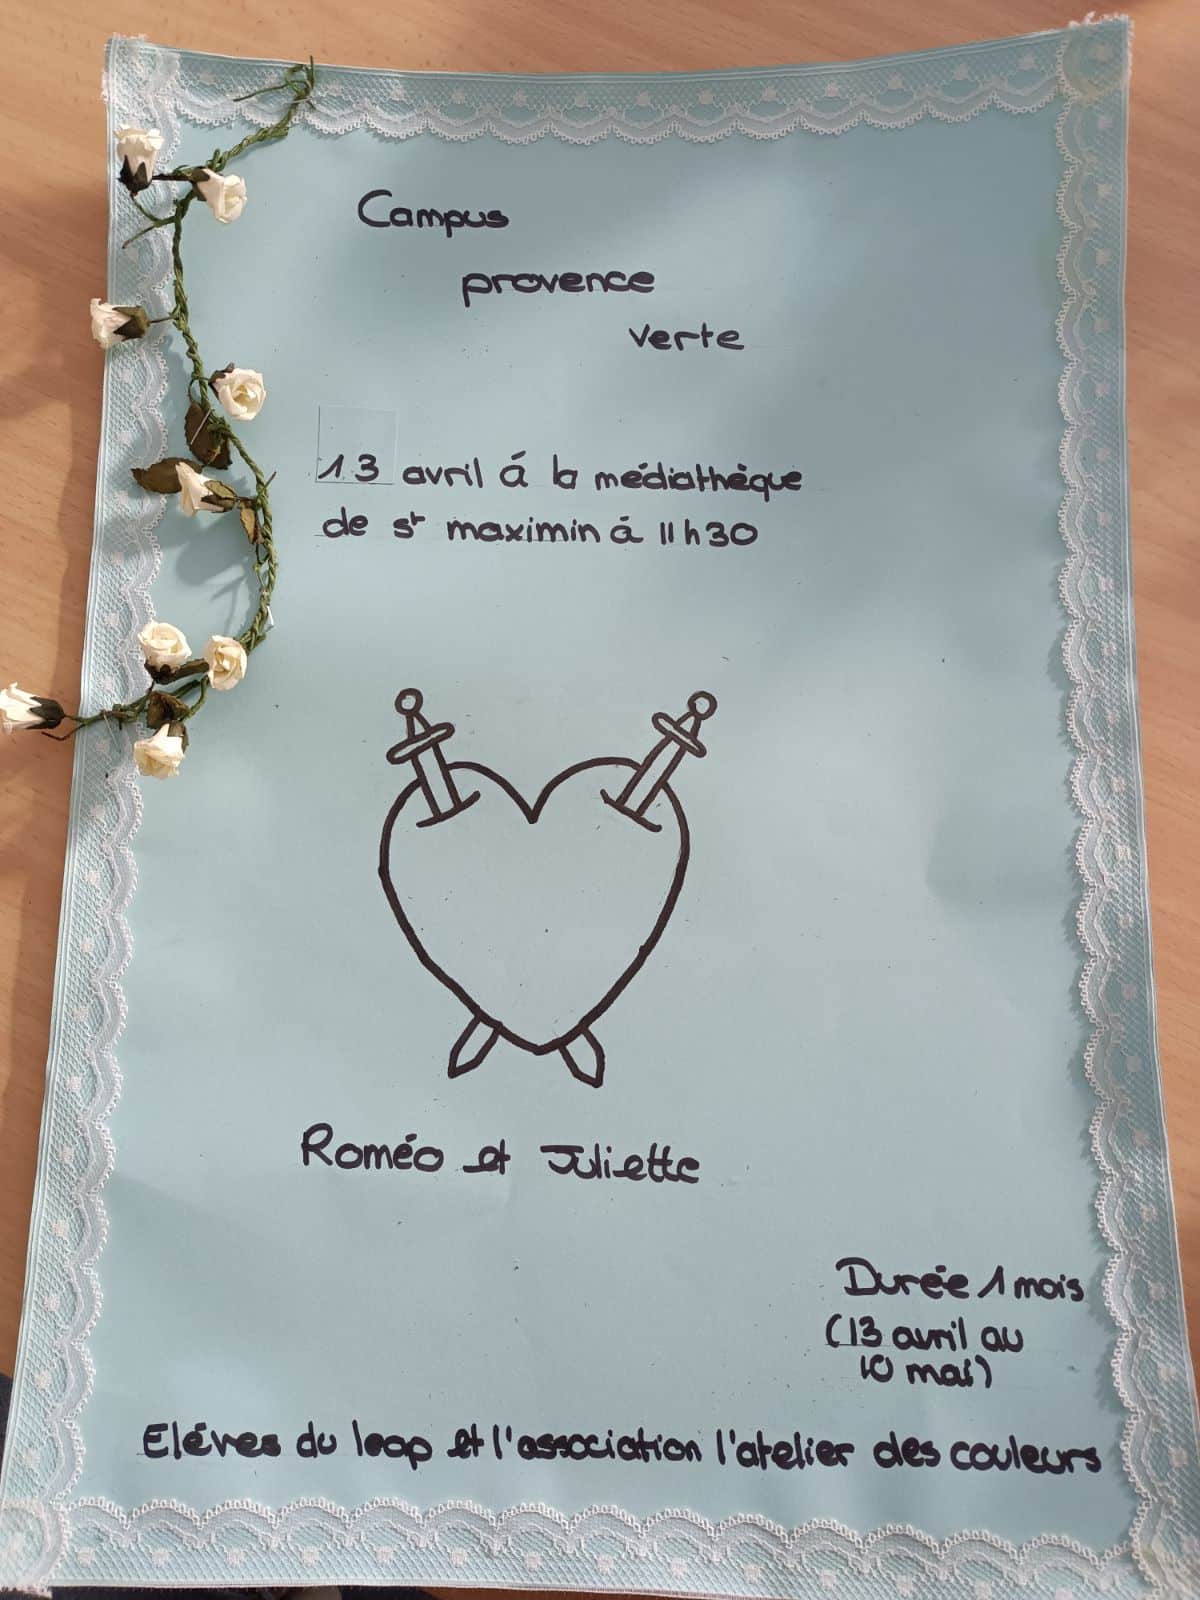 Campus
provence
verte
13 avril á la médiathèque
de st maximin à 11h30
Roméo et Juliette
Durée 1 mois
(13 avril au
10 mai)
Eléves du leap et l'association l'atelier des couleurs